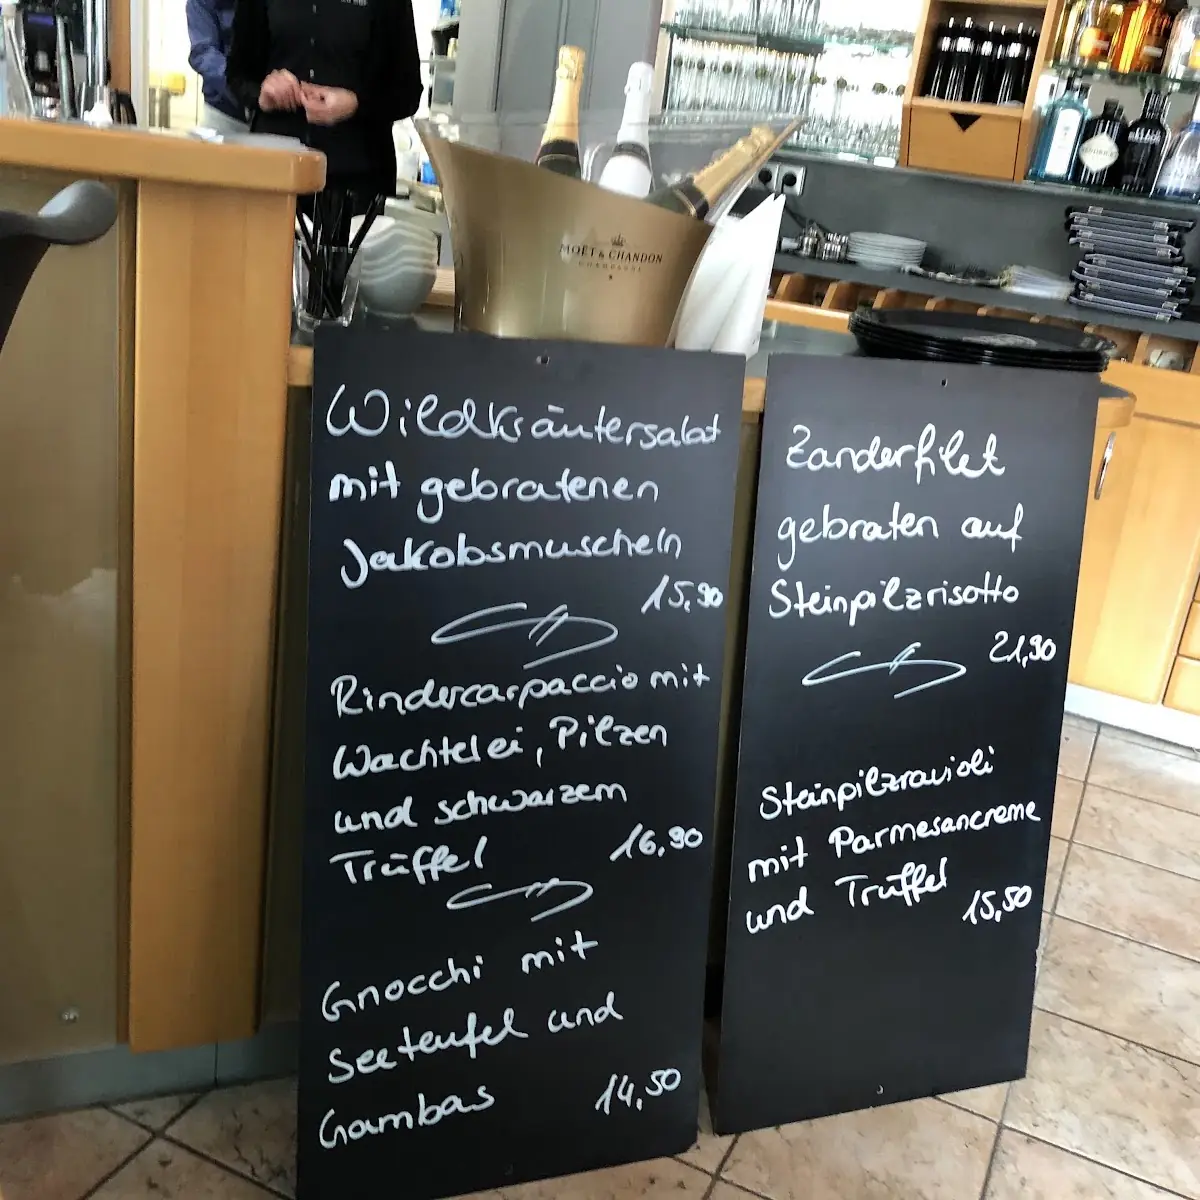 MOËT & CHANDON
CHAMPAGNE
Wildkräutersalat
mit gebratenen
Jakobsmuscheln
15,90
Rindercarpaccio mit
Wachtelei, Pilzen
und schwarzem
Trüffel
16,90
Gnocchi mit
Seeteufel und
Gambas
14,50
Zanderfilet
gebraten auf
Steinpilzrisotto
21,90
Steinpilzravioli
mit Parmesancreme
und Trüffel
15,50